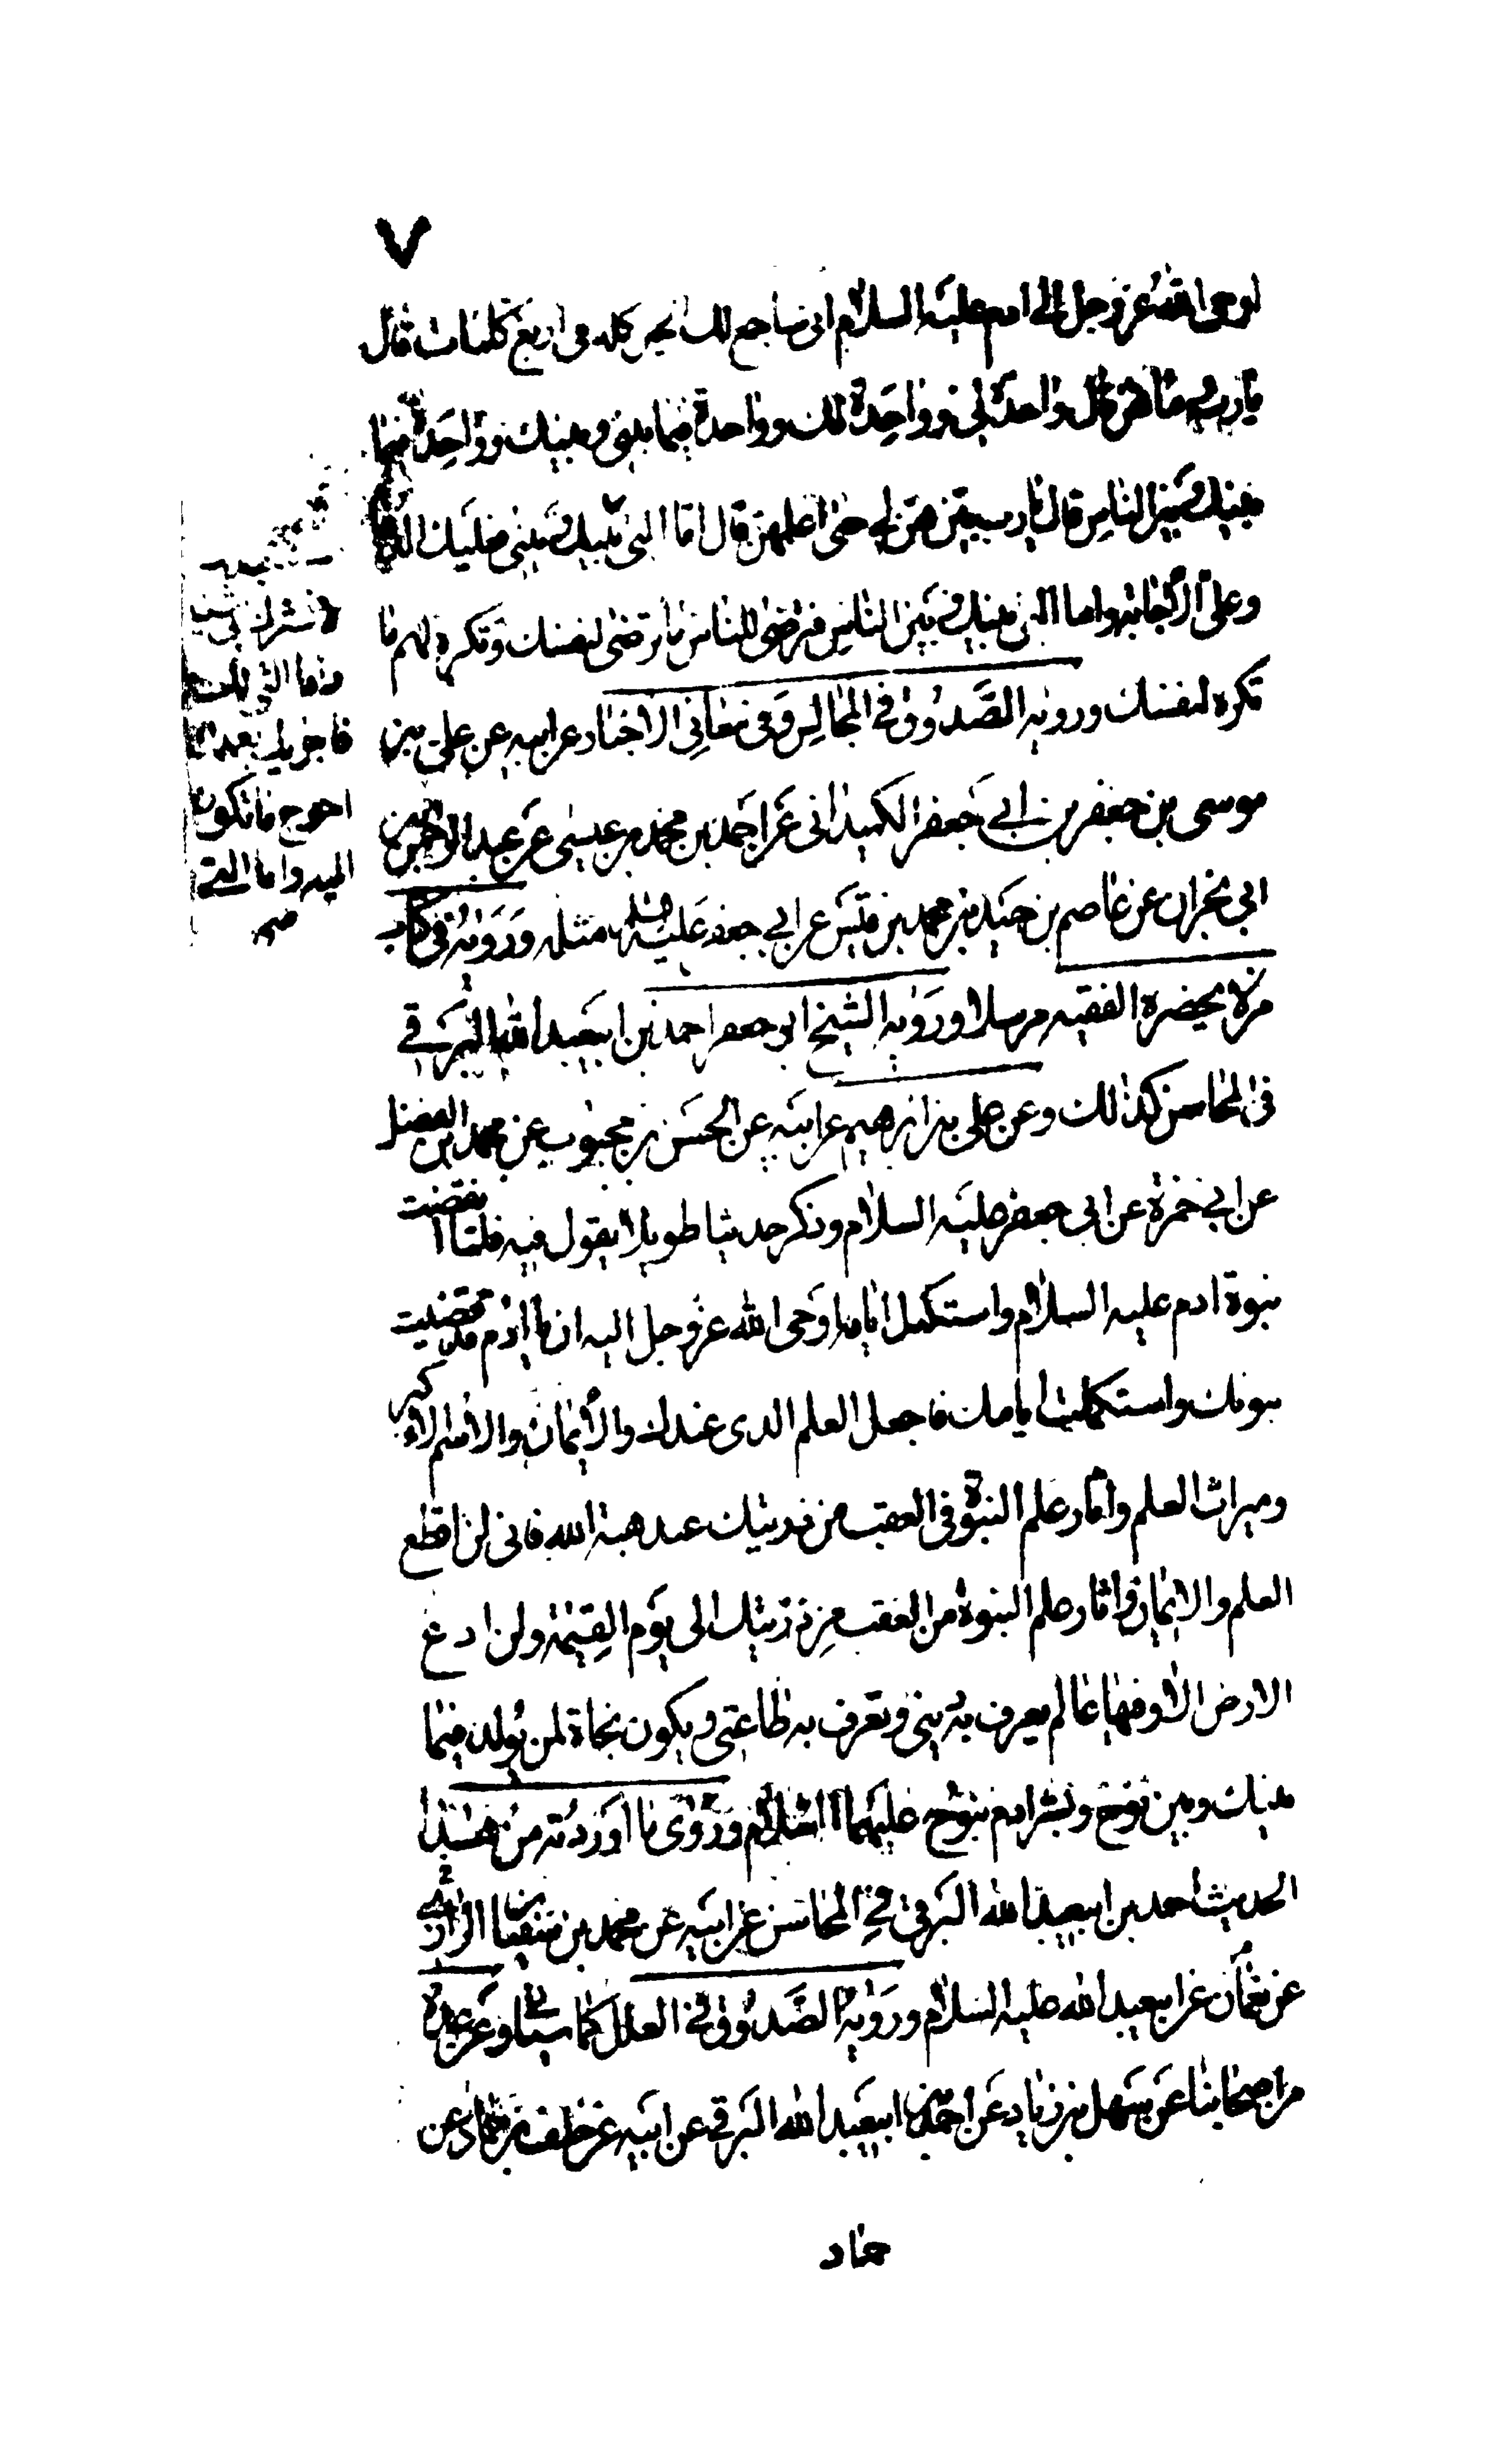 ٧
اوحى الله عز وجل الى ادم عليه السلام انى ساجمع لك الخير كله فى اربع كلمات قال
يا رب وما هن قال واحدة لى وواحدة لك وواحدة فيما بينى وبينك وواحدة فيما
بينك وبين الناس قال يا رب بينهن لى حتى اعلمهن قال اما التى بينك وبينى فعليك الدعا
وعلى الاجابة واما التى بينك وبين الناس فترضى للناس ما ترضى لنفسك وتكره لهم ما
تكره لنفسك ورواه الصدوق فى المجالس وفى معانى الاخبار عن ابيه عن على بن
موسى بن جعفر بن ابى جعفر الكميدانى عن احمد بن محمد بن عيسى عن عبد الرحمن بن
ابى نجران عن عاصم بن حميد بن محمد بن قيس عن ابى جعفر عليه السلام مثله ورواه فى كتاب
من لا يحضره الفقيه مرسلا ورواه الشيخ ابو جعفر احمد بن ابيعبد الله البرقى
فى المحاسن كذلك وعن على بن ابراهيم عن ابيه عن الحسن بن محبوب عن محمد بن الفضيل
عن ابى حمزة عن ابى جعفر عليه السلام وذكر حديثا طويلا يقول فيه فلما انقضت
نبوة ادم عليه السلام واستكمل ايامه اوحى الله عز وجل اليه ان يا ادم قد قضيت
نبوتك واستكملت ايامك فاجعل العلم الذى عندك والايمان والاسم الاكبر
وميراث العلم واثار علم النبوة فى العقب من ذريتك عند هبة الله فانى لن اقطع
العلم والايمان واثار علم النبوة من العقب من ذريتك الى يوم القيمة ولن ادع
الارض الا وفيها عالم يعرف به دينى وتعرف به طاعتى ويكون نجاة لمن يولد فيما
بينك وبين نوح وبشر ادم بنوح عليهما السلام وروى ما اوردته من هذا
الحديث احمد بن ابيعبد الله البرقى فى المحاسن عن ابيه عن محمد بن سفيان
عن نعمان عن ابيعبد الله عليه السلام ورواه الصدوق فى العلل كما سياتى وعن عدة
من اصحابنا عن سهل بن زياد عن احمد بن ابيعبد الله البرقى عن ابيه عن خلف بن حماد عن
حماد
لا تشرك بى شيئا
واما التى لك
فاجزيك بعملك
احوج ما تكون
اليه واما التى
صح